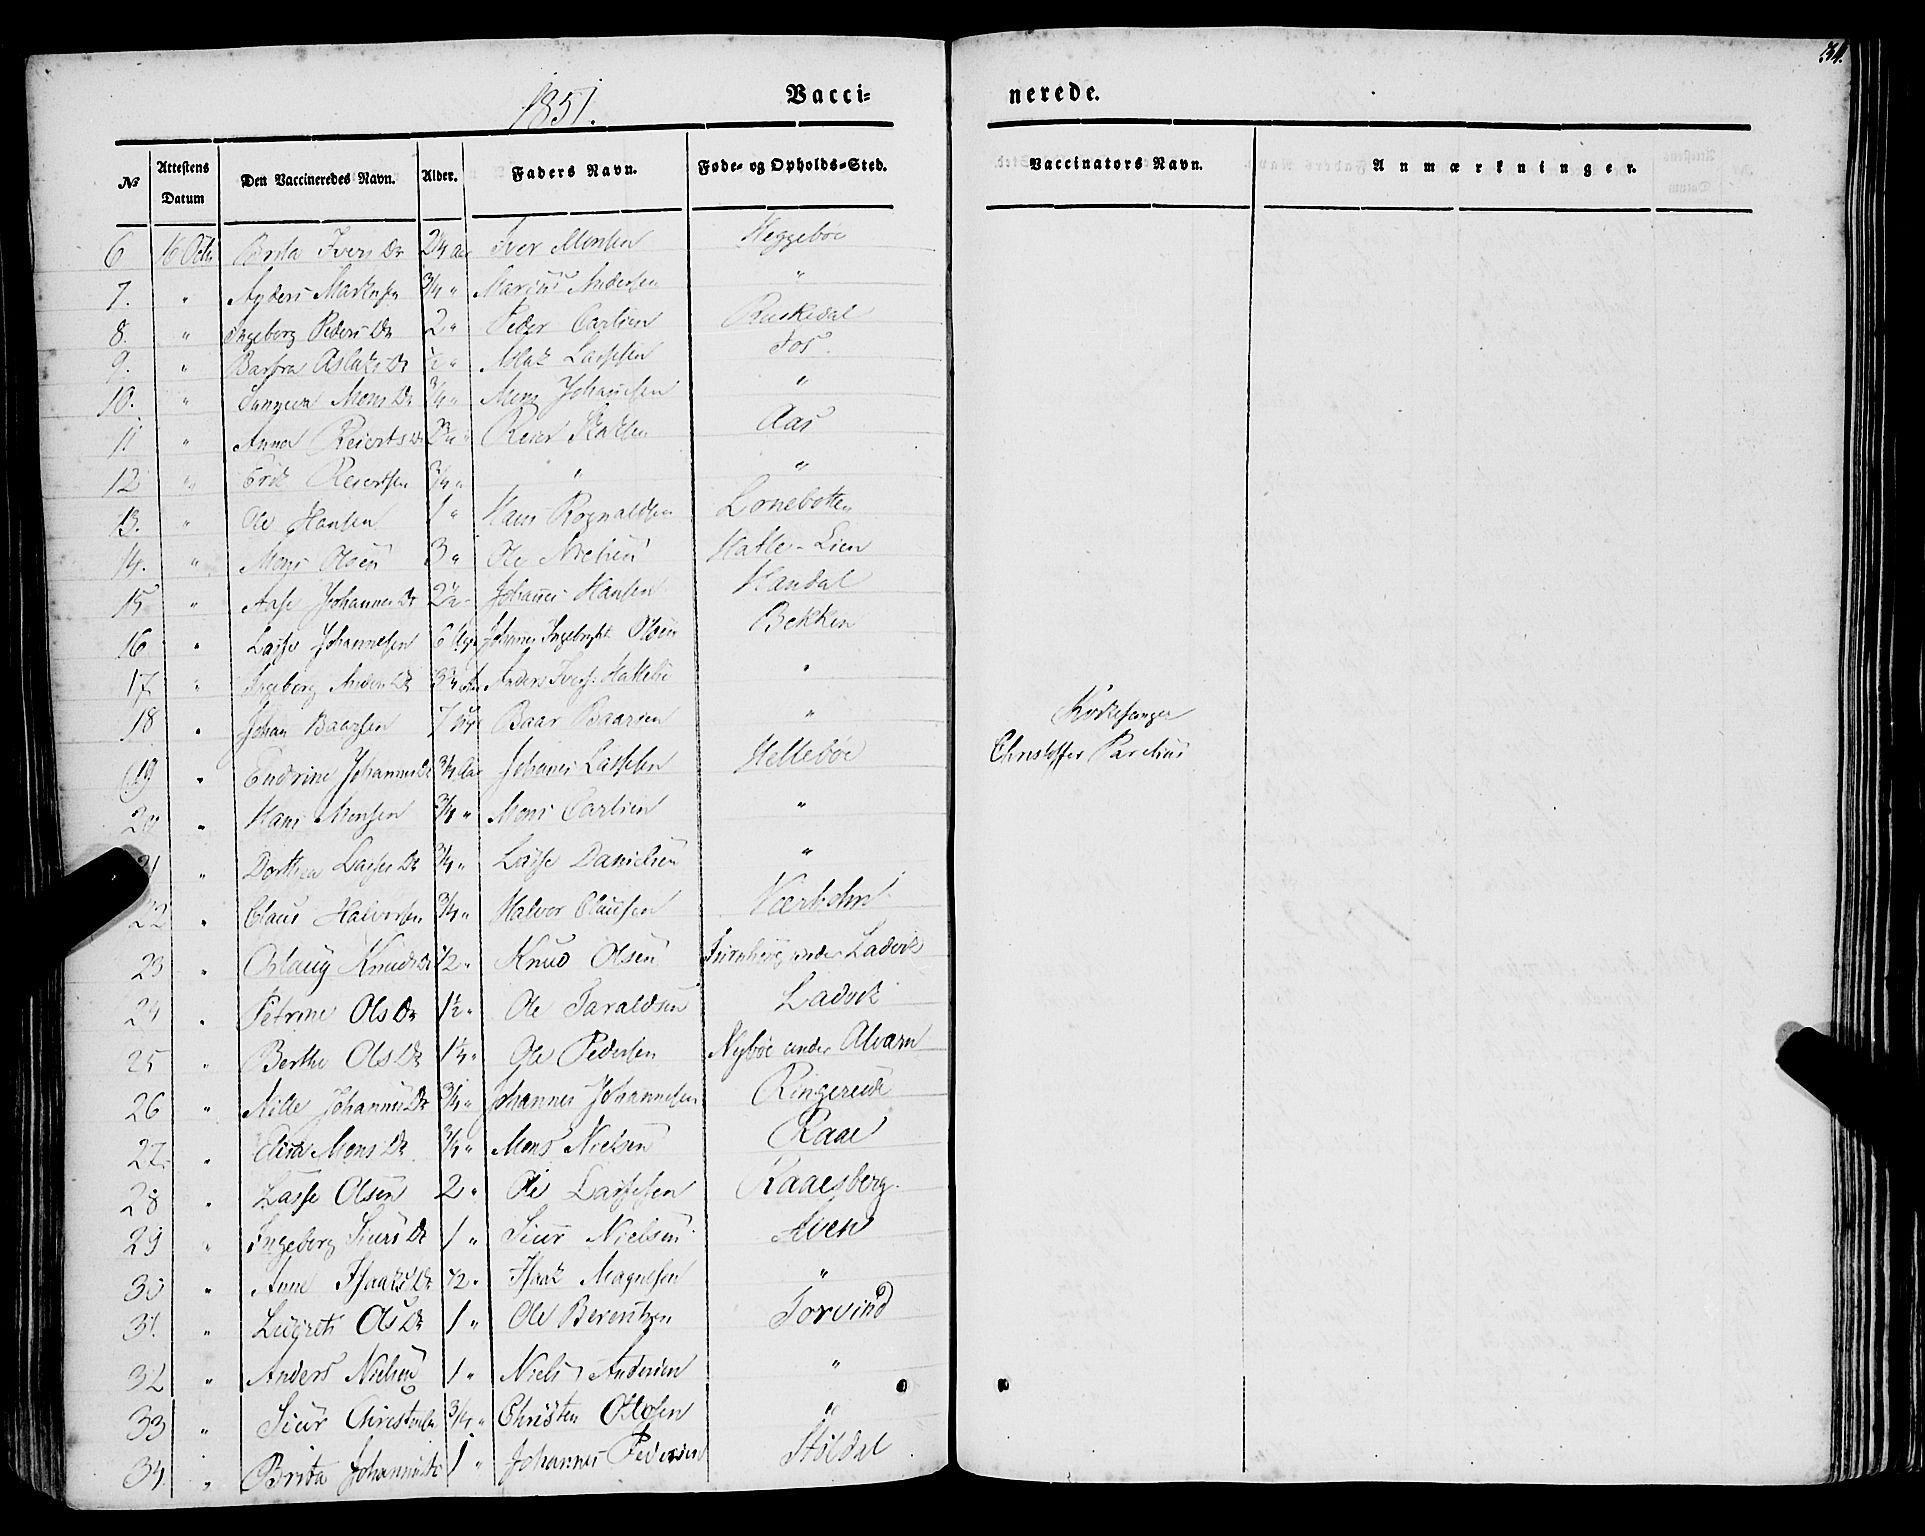 1851.
Vacci-
nerede.
№ Attestens Datum Den Vaccineredes Navn. Alder. Faders Navn. Føde- og Opholds-Sted. Vaccinators Navn. Anmærkninger.
6 16 Octr Brita Ivers Dr 2¼ Aar Iver Monsen Heggebøe
7. " Anders Markusen ¾ " Marcus Andersen "
8. " Ingeborg Peders Dr 2 " Peder Carlsen Ruskedal
9. " Barbra Aslaks Dr ½ " Aslak Lassesen Fos.
10. " Mons Dr ¾ " Mons Johannesen "
11 " Anna Reierts Dr Reier Aas
12 " Erik Reiersen ¾ " " "
13. " Ole Hansen 1 " Hans Rognaldsen Lonebotten
14. " Mons Olsen 3 " Ole Nielsen Hatle-Lien
15 " Aase Johannes Dr 2½ " Johannes Hansen Handal
16 " Lasse Johannesen 6 Johannes Ingebrigt Olsen Bekken
17 " Ingeborg Anders Dr Anders Ivers. Hattebø "
18 " Johan Baarsen 7 Baar Baarsen "
19 " Endrine Johannes Dr ¾ Aar Johannes Lassesen Hellebøe
20 " Hans Monsen ¾ " Mons Carlsen "
21 " Dorthea Lasses Dr ¾ " Lasse Danielsen "
22 " Claus Halvorsen ¾ " Halvor Clausen
23 " Oslaug Knuds Dr ½ " Knud Olsen under Ladvik
24 " Petrine Ols Dr 1½ " Ole Taraldsen Ladvik
25 " Berthe Ols Dr 1¼ " Ole Pedersen Nybøe under Alværn
26 " Nille Johannes Dr ¾ " Johannes Johannesen Ringereide
27. " Elisa Mons Dr ¾ " Mons Nielsen Raae
28 " Lasse Olsen 2 " Ole Lassesen Kaaesberg.
29 " Ingeborg Siurs Dr 1 " Siur Nielsen
30 " Anne Isaaks Dr ½ " Isaak Magnesen "
31. " Ols Dr 1 " Ole Berentsen Torvind
32 " Anders Nielsen 1 " Niels Andersen "
33 " Siur Christensen ¾ " Christen Olsen "
34 " Brita Johannes Dr 1 " Johannes Pedersen Støldal
Kirkesanger
Christoffer Parelius